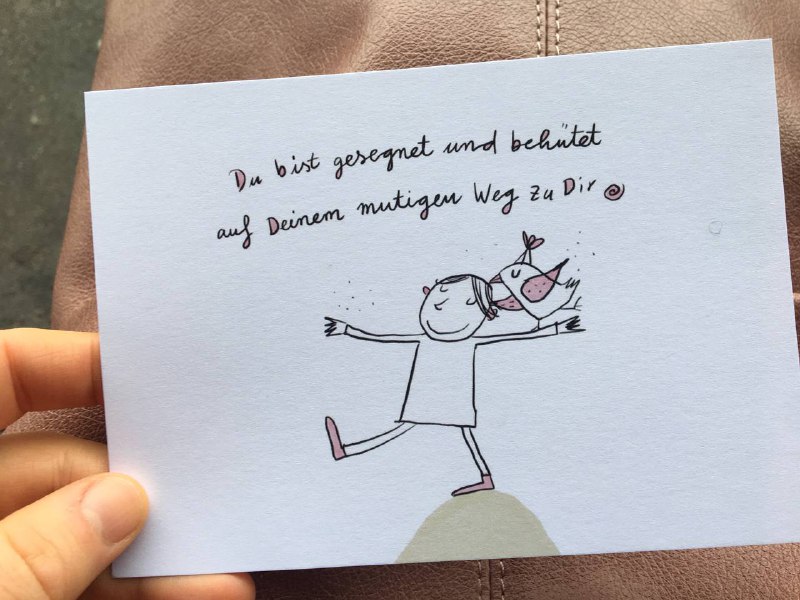 Du bist gesegnet und behütet
auf Deinem mutigen Weg zu Dir